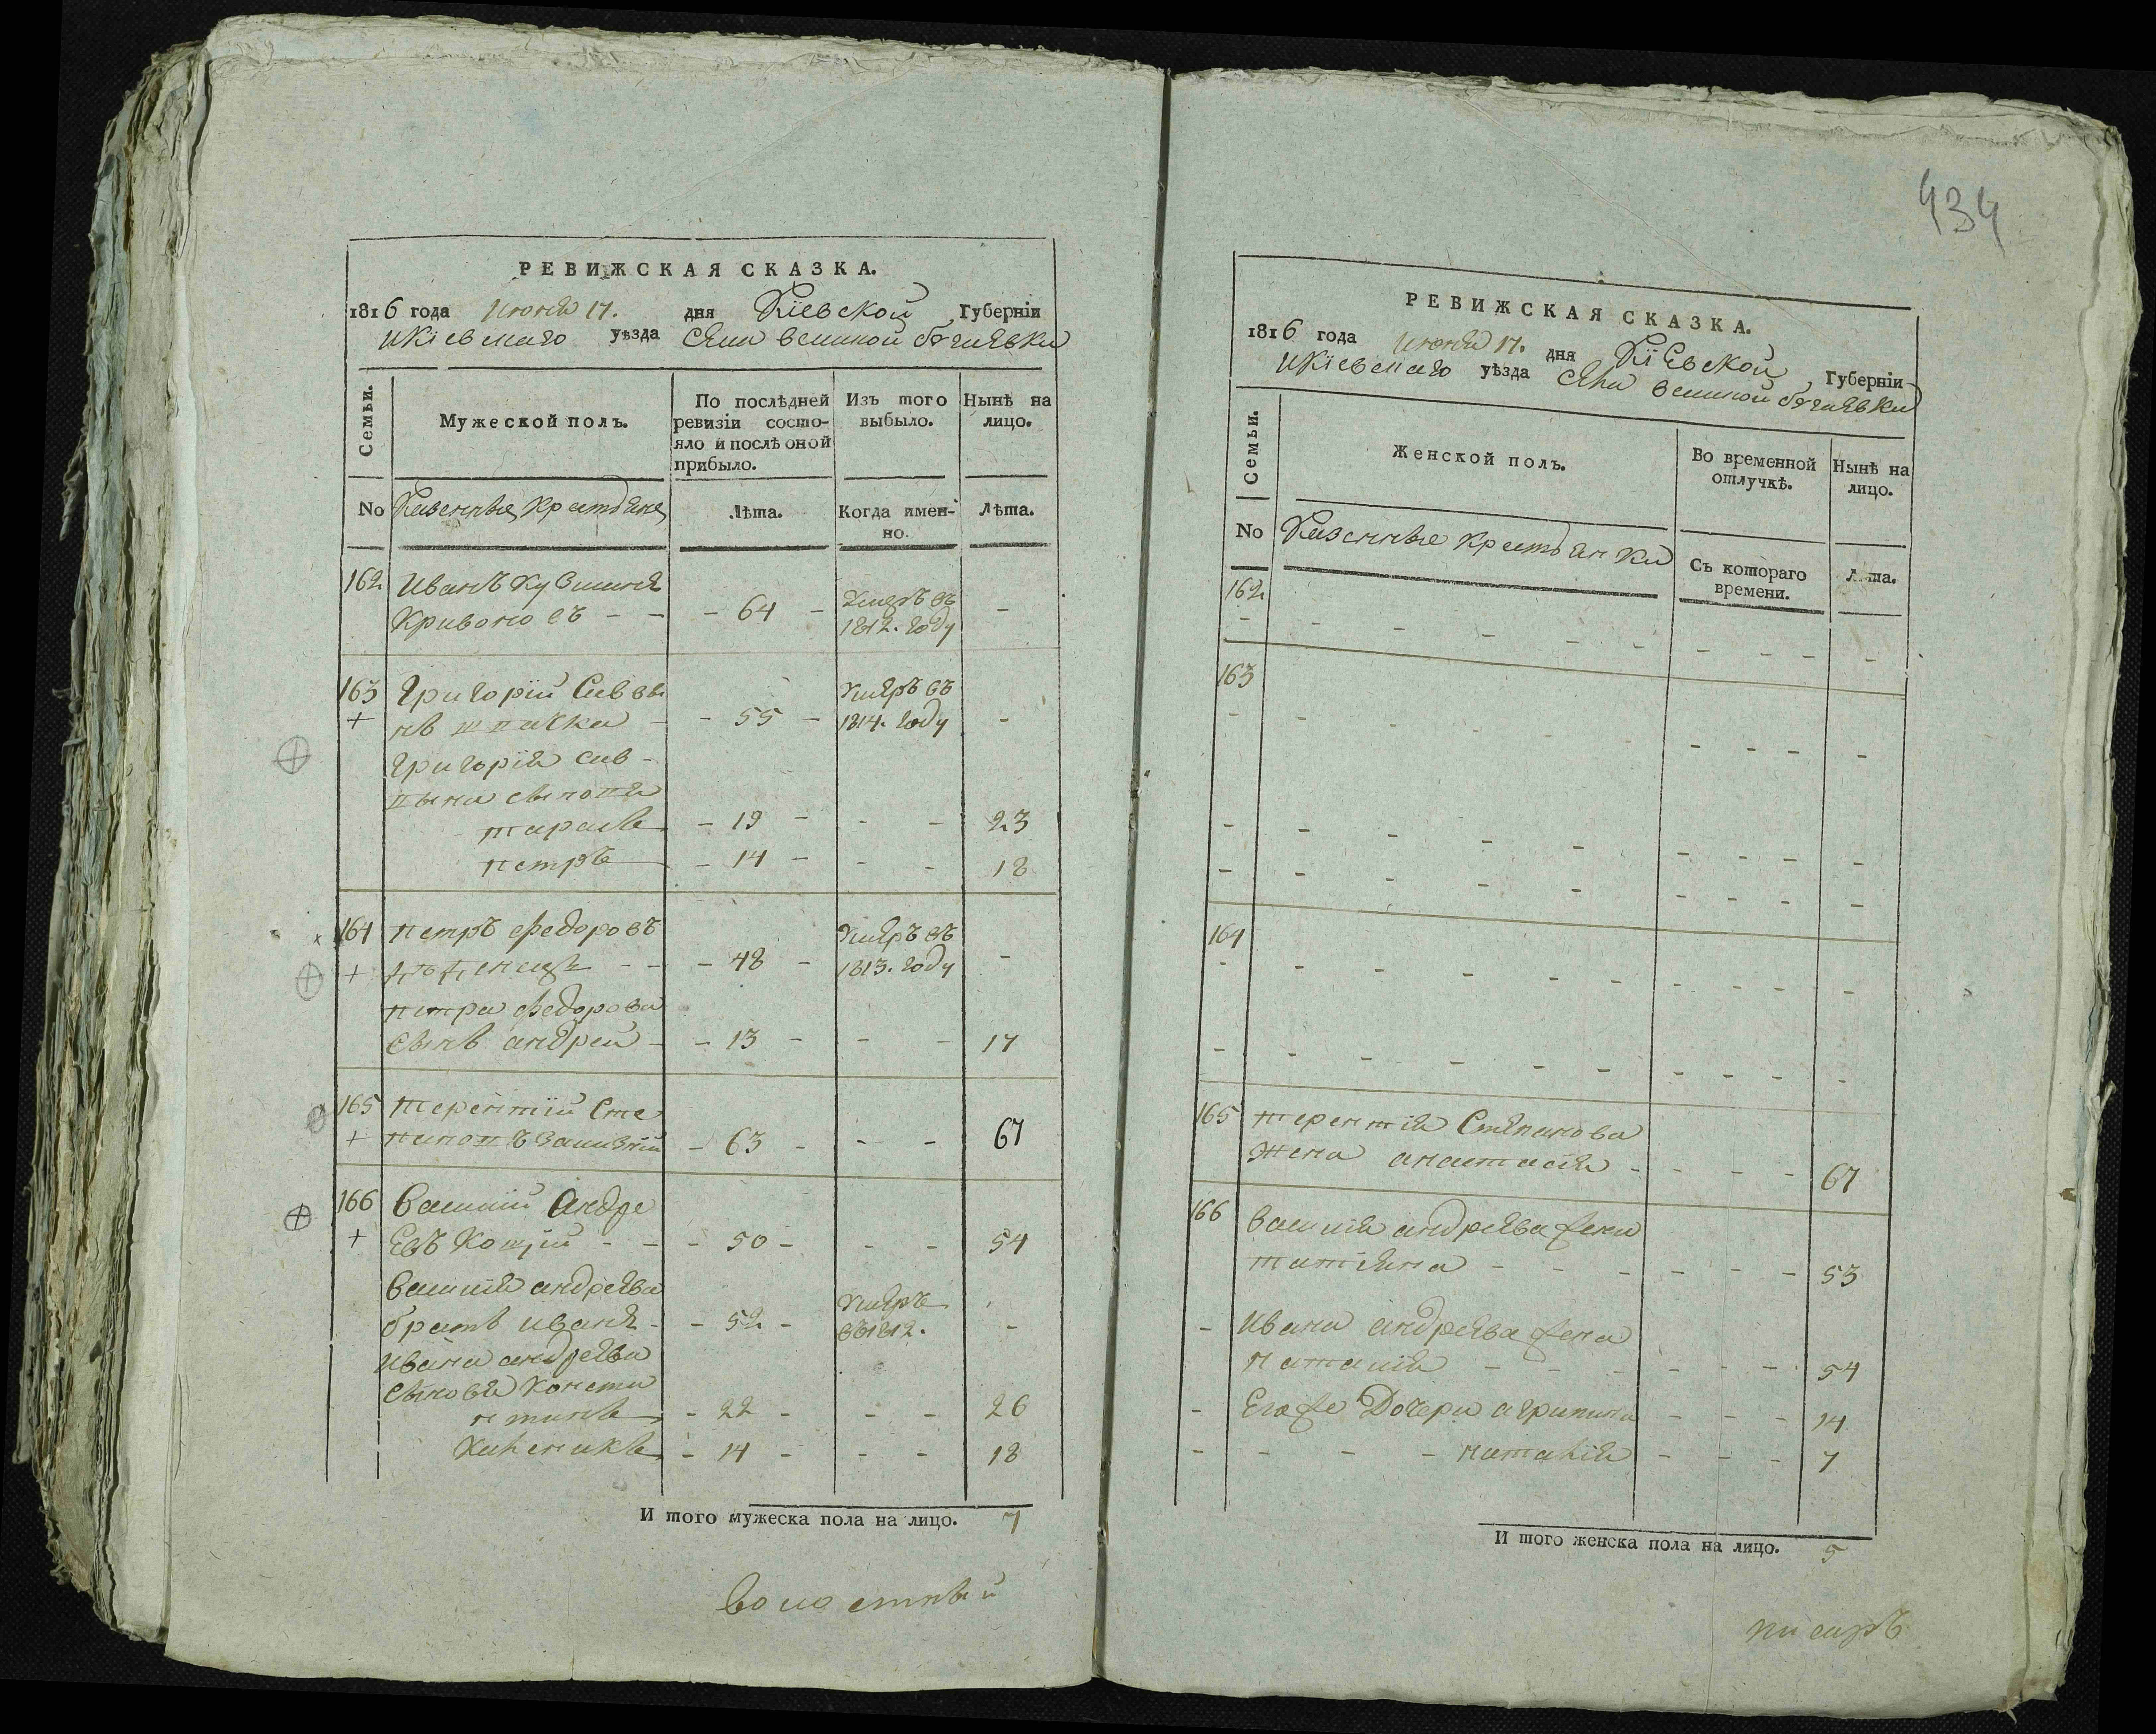 434
РЕВИЖСКАЯ СКАЗКА.
1816 года июня 17. дня Кіевской Губерніи
икіевскаго уѣзда села великой бугаевки
Семьи.
Мужеской полъ.
По послѣдней ревизіи состо-
яло и послѣ оной
прибыло.
Изъ того
выбыло.
Нынѣ на
лицо.
No Казенные крестьяне
Лѣта.
Когда имен-
но.
Лѣта.
162 Иванъ
Кривоносъ - - - 64 - умеръ въ 1812. году -
163 Григорій Савви
нъ шпачка - - 55 - умеръ въ 1814. году -
+
Григорія сав-
вына сыновя
тарасъ - 19 - - - 23
петръ - 14 - - - 18
164 петръ федоровъ
+ - - - 48 - умеръ въ 1813. году -
петра федорова
сынъ андрей - - 13 - - - 17
165 терентій Сте
+ пановъ - 63 - - - 67
166 василій Андре
+ евъ Коцій - - - 50 - - - 54
василія андреева
братъ иванъ - - 52 - умеръ въ 1812. -
ивана андреева
сыновя конста
нтинъ - 22 - - - 26
- 14 - - - 18
И того мужеска пола на лицо. 7
волостный
РЕВИЖСКАЯ СКАЗКА.
1816 года июня 17. дня Кіевской Губерніи
икіевскаго уѣзда села великой бугаевки
Семьи.
Женской полъ.
Во временной
отлучкѣ.
Нынѣ на
лицо.
No Казенные крестьянки
Съ котораго
времени.
Лѣта.
162
163
164
165 терентія Степанова
жена анастасія - - - - 67
166 василія андреева жена
татіяна - - - - - - - 53
- Ивана андреева жена
наталія - - - - - - - 54
- Егоже Дочери агрипина - - - 14
- - - - наталія - - - 7
И того женска пола на лицо. 5
писаръ